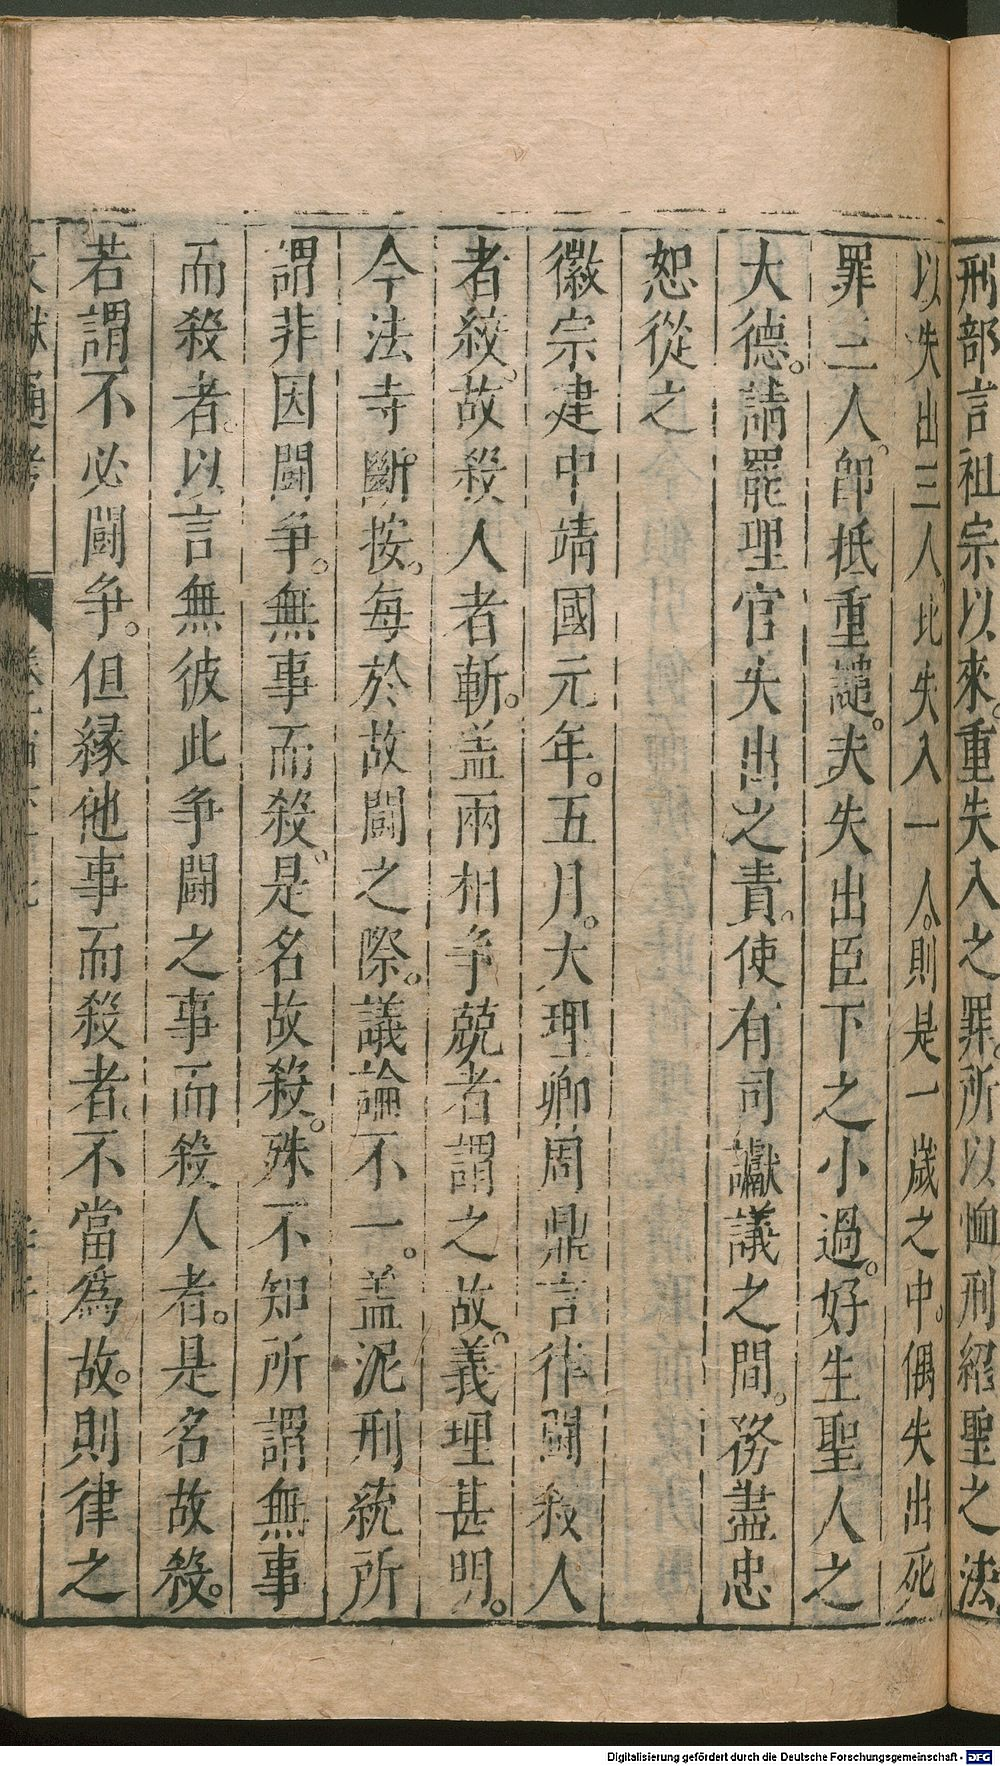 刑部言祖宗以來。重失入之罪。所以恤刑紹聖之法。
以失出三人。比失入一人。則是一歲之中。偶失出死
罪三人。卽抵重譴。夫失出臣下之小過。好生聖人之
大德。請罷理官失出之責。使有司讞議之間。務盡忠
恕從之
徽宗建中靖國元年。五月。大理卿周鼎言律鬪殺人
者絞。故殺人者斬。盖兩相爭兢者謂之故。義理甚明。
今法寺斷按。每於故鬪之際。議論不一。盖泥刑統所
謂非因鬪爭。無事而殺。是名故殺。殊不知所謂無事
而殺者。以言無彼此爭鬪之事而殺人者。是名故殺。
若謂不必鬪爭。但緣他事而殺者。不當為故。則律之
文獻通考
Digitalisierung gefördert durch die Deutsche Forschungsgemeinschaft - DFG